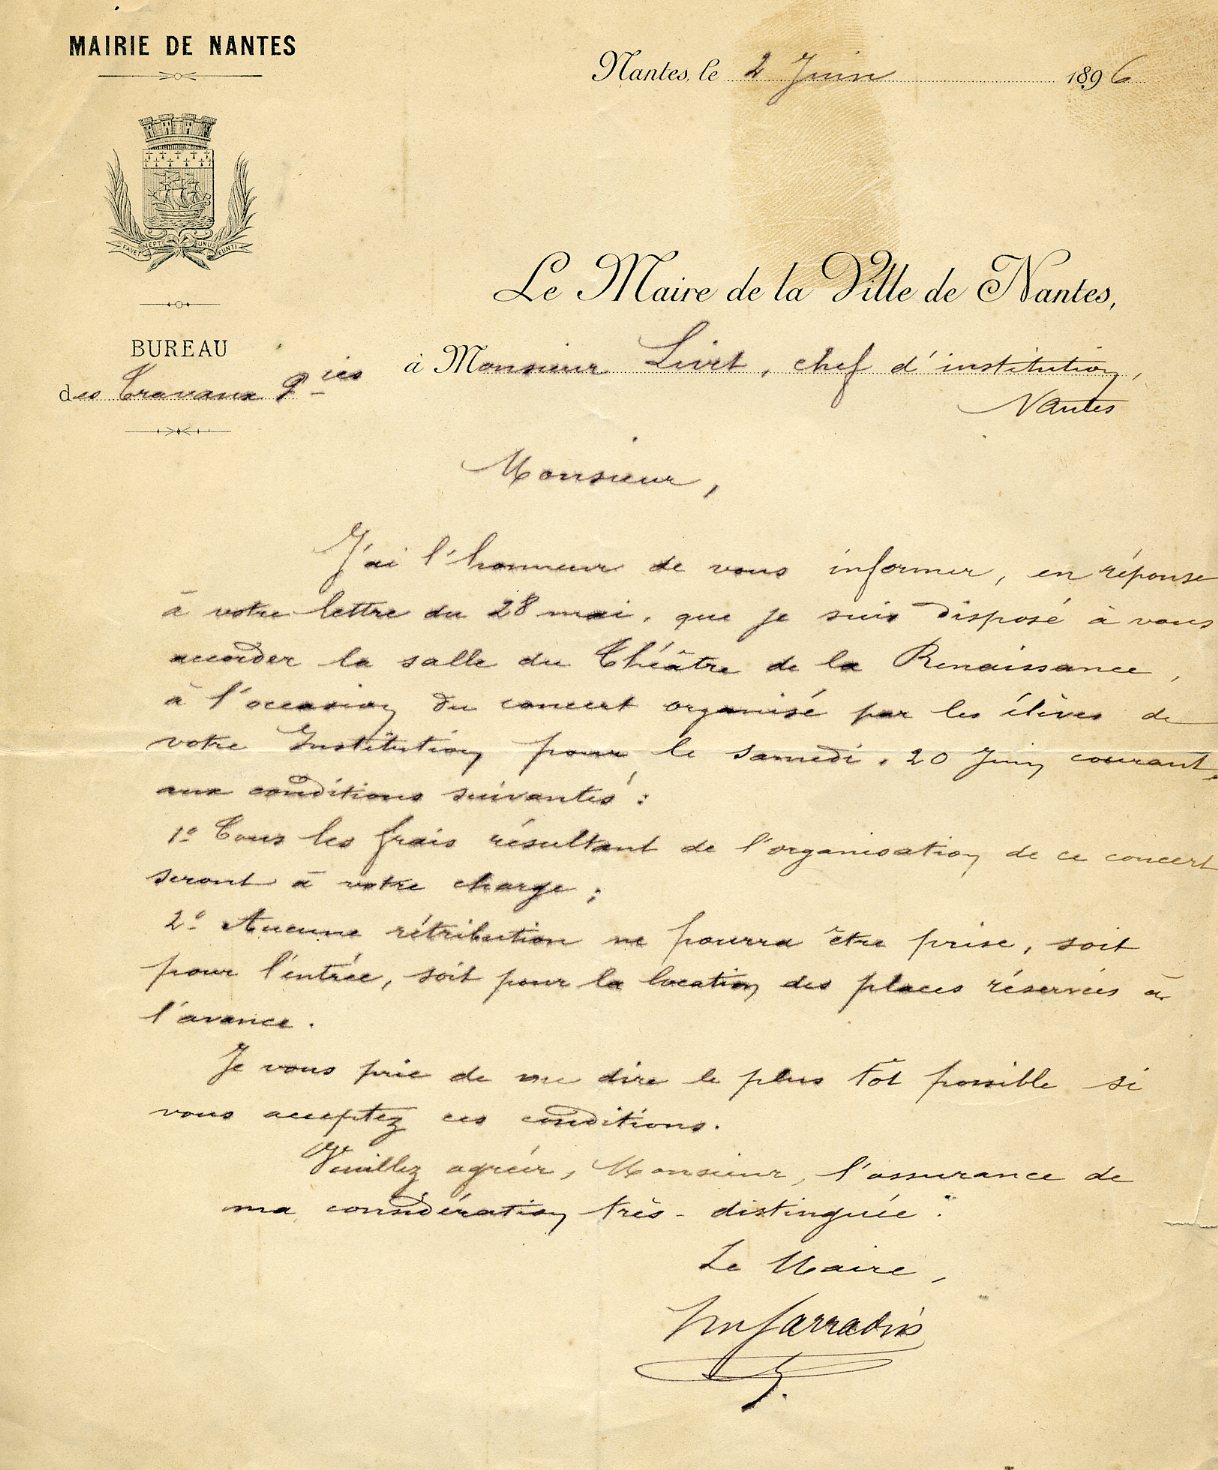 MAIRIE DE NANTES
Nantes, le 2 Juin 1896
FAVET NEPTUNUS EUNTI
Le Maire de la Ville de Nantes,
BUREAU
des Travaux Pics
à Monsieur Livet, chef d'institution,
Nantes
Monsieur,
J'ai l'honneur de vous informer, en réponse
à votre lettre du 28 mai, que je suis disposé à vous
accorder la salle du Théâtre de la Renaissance,
à l'occasion du concert organisé par les élèves de
votre Institution pour le samedi, 20 Juin courant,
aux conditions suivantes :
1º Tous les frais résultant de l'organisation de ce concert
seront à votre charge ;
2º Aucune rétribution ne pourra être prise, soit
pour l'entrée, soit pour la location des places réservées à
l'avance.
Je vous prie de me dire le plus tôt possible si
vous acceptez ces conditions.
Veuillez agréer, Monsieur, l'assurance de
ma considération très-distinguée.
Le Maire,